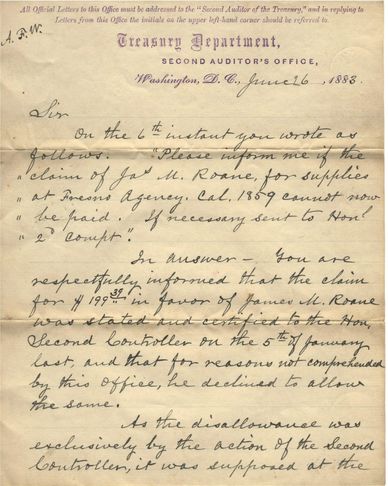 All Official Letters to this Office must be addressed to the "Second Auditor of the Treasury," and in replying to
Letters from this Office the initials on the upper left-hand corner should be referred to.
A. F. W.
Treasury Department,
SECOND AUDITOR'S OFFICE,
Washington, D. C., June 26, 1883.
Sir
On the 6th instant you wrote as
follows. "Please inform me if the
" claim of Jas M. Roane, for supplies
" at Fresno Agency. Cal. 1859 cannot now
" be paid. If necessary sent to Honl
" 2d Compt".
In answer – You are
respectfully informed that the claim
for $199 39 in favor of James M. Roane
was stated and certified to the Hon,
Second Controller on the 5th of January
last, and that for reasons not comprehended
by this Office, he declined to allow
the same.
As the disallowance was
exclusively by the action of the Second
Controller, it was supposed at the